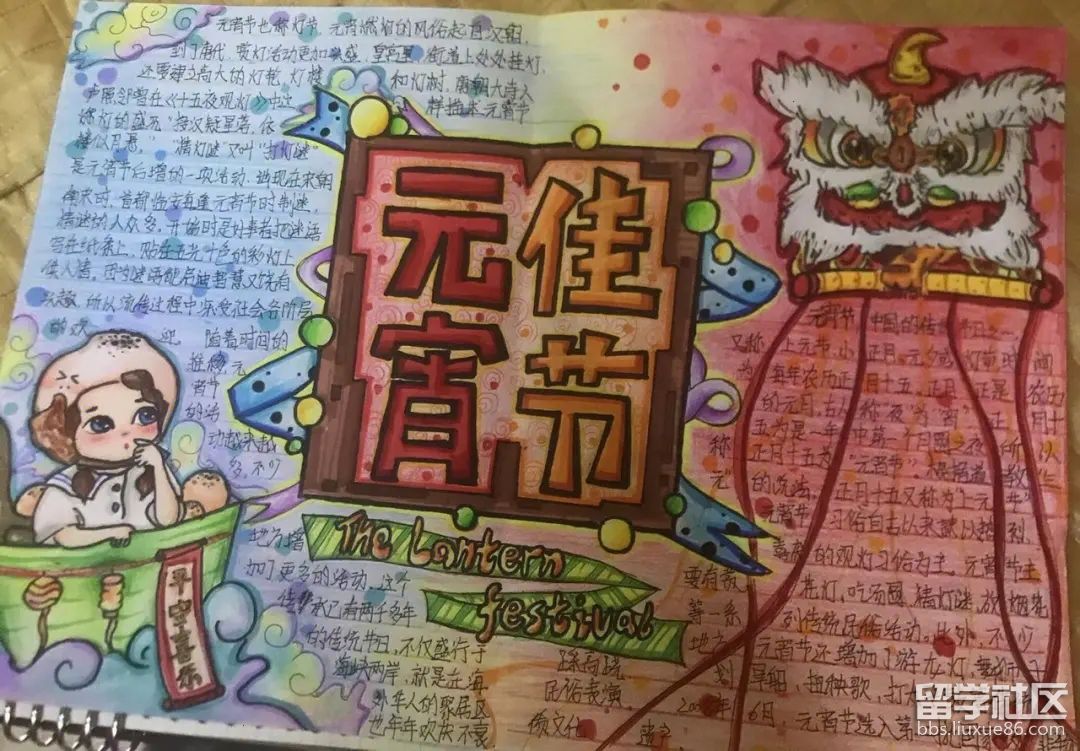 元宵节也称灯节，元宵燃灯的风俗起自汉朝，
到了唐代，赏灯活动更加兴盛，皇宫里、街道上处处挂灯，
还要建立高大的灯轮、灯楼和灯树，唐朝大诗人
卢照邻曾在《十五夜观灯》中这样描述元宵节
燃灯的盛况"接汉疑星落，依
楼似月悬。""猜灯谜"又叫"打灯谜"
是元宵节后增的一项活动，出现在宋朝
南宋时，首都临安每逢元宵节时制迷，
猜谜的人众多，开始时是好事者把谜语
写在纸条上，贴在五光十色的彩灯上
供人猜，因为谜语能启迪智慧又饶有
兴趣，所以流传过程中深受社会各阶层
的欢迎 随着时间的
推移，元
宵节
的活
动越来越
多，不少
地方增
加了更多的活动，这个
传承已有两千多年
的传统节日，不仅盛行于
海峡两岸，就是在海
外华人的聚居区
也年年欢庆不衰
元宵
佳节
The Lantern
festival
平安喜乐
元宵节，中国的传统节日之一
又称上元节、小正月、元夕或灯节，时间
为每年农历正月十五，正月是农历
的元月，古人称"夜"为"宵"，正月十
五为是一年中第一个月圆之夜，所以
称正月十五为"元宵节"，根据道教"三
元"的说法，正月十五又称为"上元节"
元宵节习俗自古以来就以热烈
喜庆的观灯习俗为主，元宵节主
要有赏花灯、吃汤圆、猜灯谜、放烟花
等一系列传统民俗活动。此外，不少
地方元宵节还增加了游龙灯、舞狮子
踩高跷
划旱船、扭秧歌、打
民俗表演，
6月，元宵节选入第
留学社区
bbs.liuxue86.com